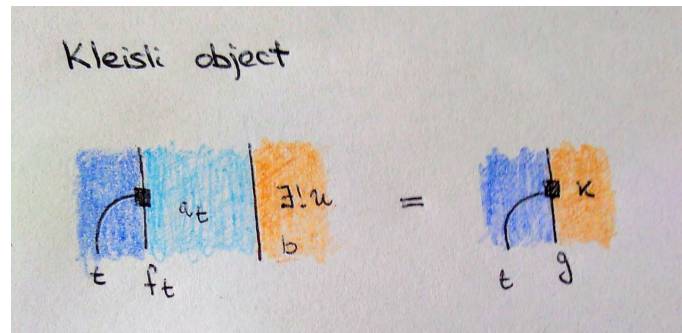 Kleisli object
a_t ∃!u = κ
b
t f_t t g